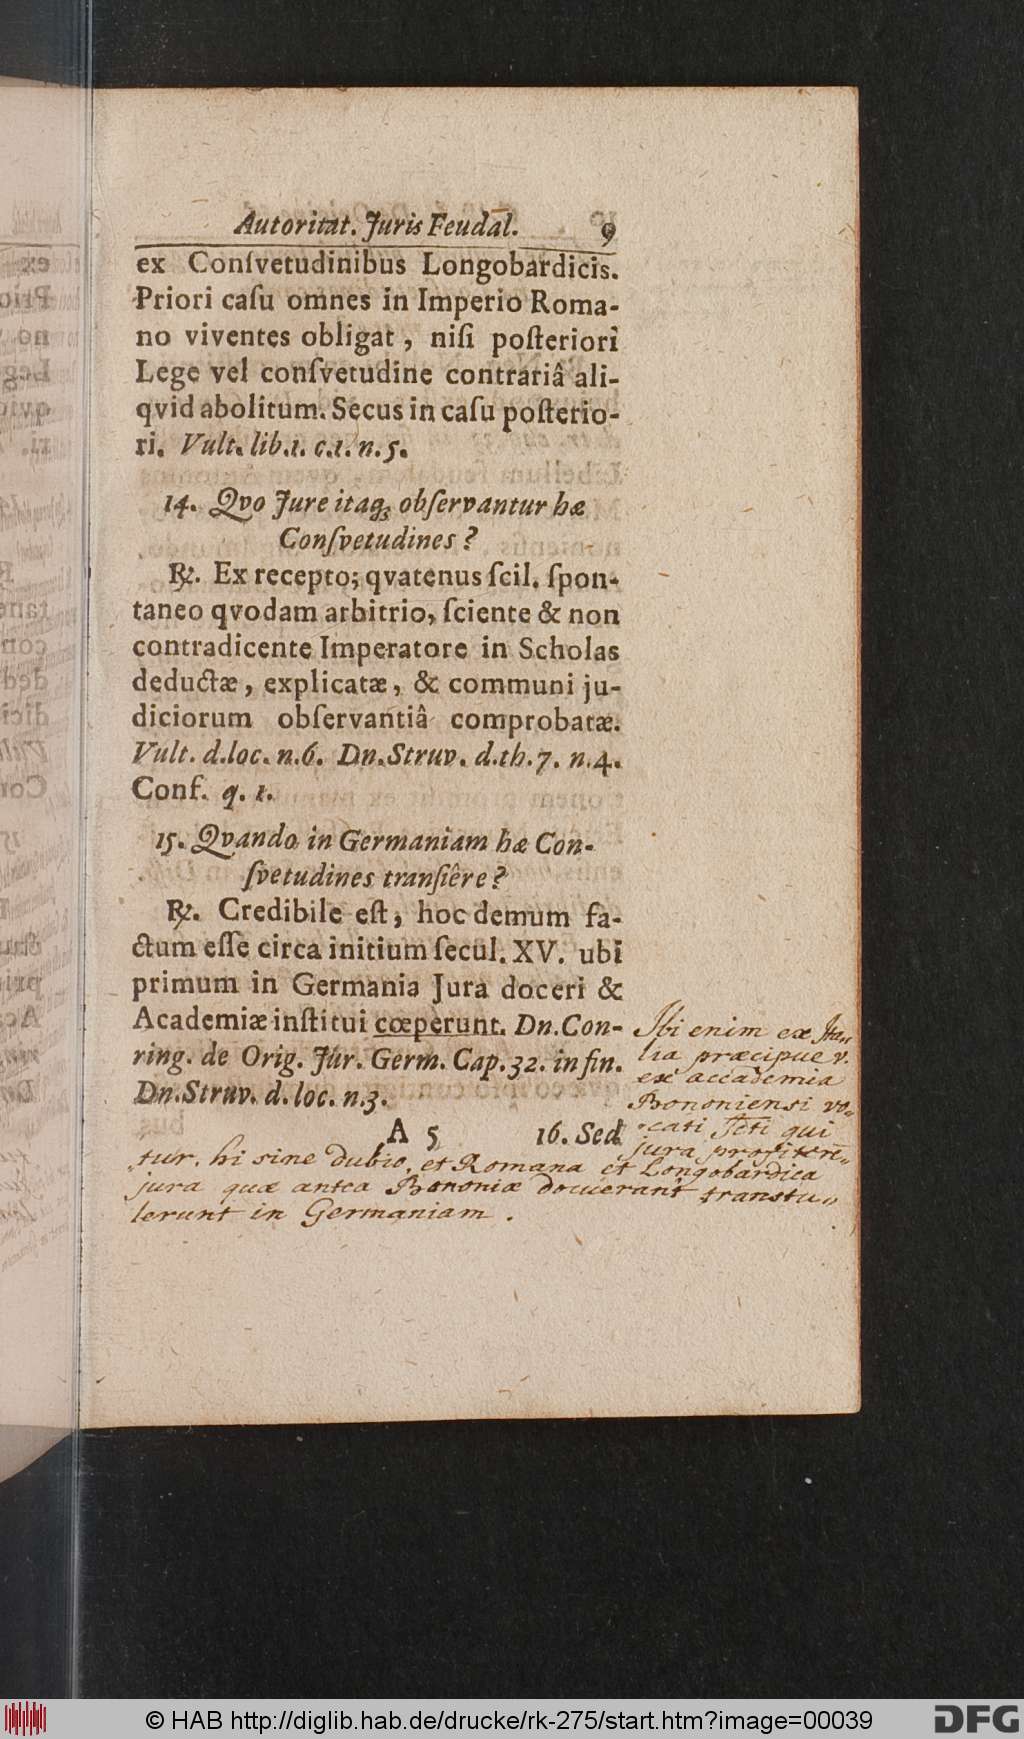 Autoritat. Juris Feudal. 9
ex Conſvetudinibus Longobardicis.
Priori caſu omnes in Imperio Roma-
no viventes obligat, niſi poſteriori
Lege vel conſvetudine contrariâ ali-
qvid abolitum. Secus in caſu poſterio-
ri. Vult. lib.1. c.1. n.5.
14. Qvo Jure itaq; obſervantur hæ
Conſvetudines?
℟. Ex recepto; qvatenus ſcil. ſpon-
taneo qvodam arbitrio, ſciente & non
contradicente Imperatore in Scholas
deductæ, explicatæ, & communi ju-
diciorum obſervantiâ comprobatæ.
Vult. d.loc. n.6. Dn.Struv. d.th.7. n.4.
Conf. q. 1.
15. Qvando in Germaniam hæ Con-
ſvetudines tranſiêre?
℟. Credibile eſt, hoc demum fa-
ctum eſſe circa initium ſecul. XV. ubi
primum in Germania Jura doceri &
Academiæ inſtitui cœperunt. Dn.Con-
ring. de Orig. Jur. Germ. Cap.32. in fin.
Dn.Struv. d.loc. n.3.
A 5 16. Sed
Ibi enim ex Ita„
lia præcipue v.
ex accademia
Bononiensi vo„
cati Jcti qui
jura profiteren„
tur. hi sine dubio, et Romana et Longobardica
jura quæ antea Bononiæ docuerant transtu„
lerunt in Germaniam.
© HAB http://diglib.hab.de/drucke/rk-275/start.htm?image=00039
DFG